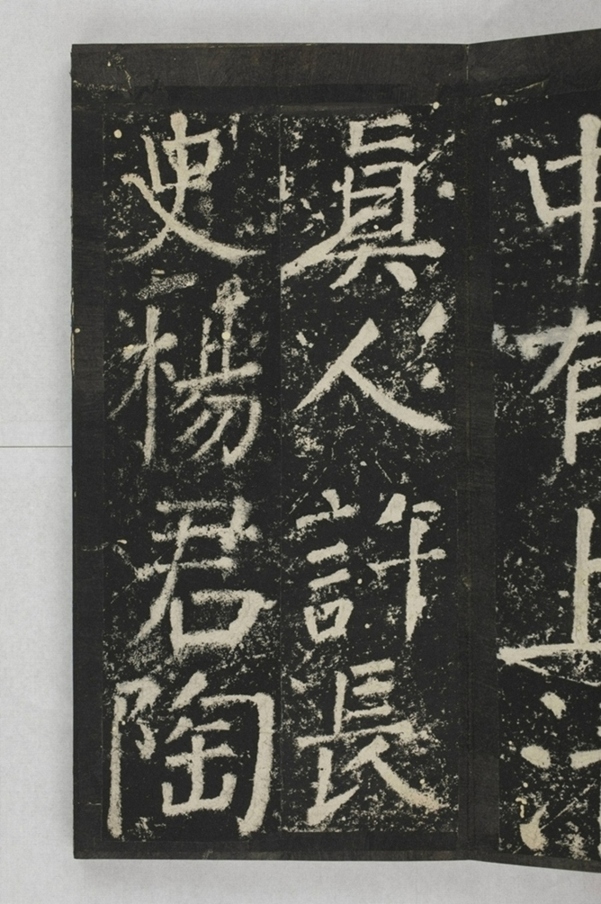 中有上
真人許長
史楊君陶